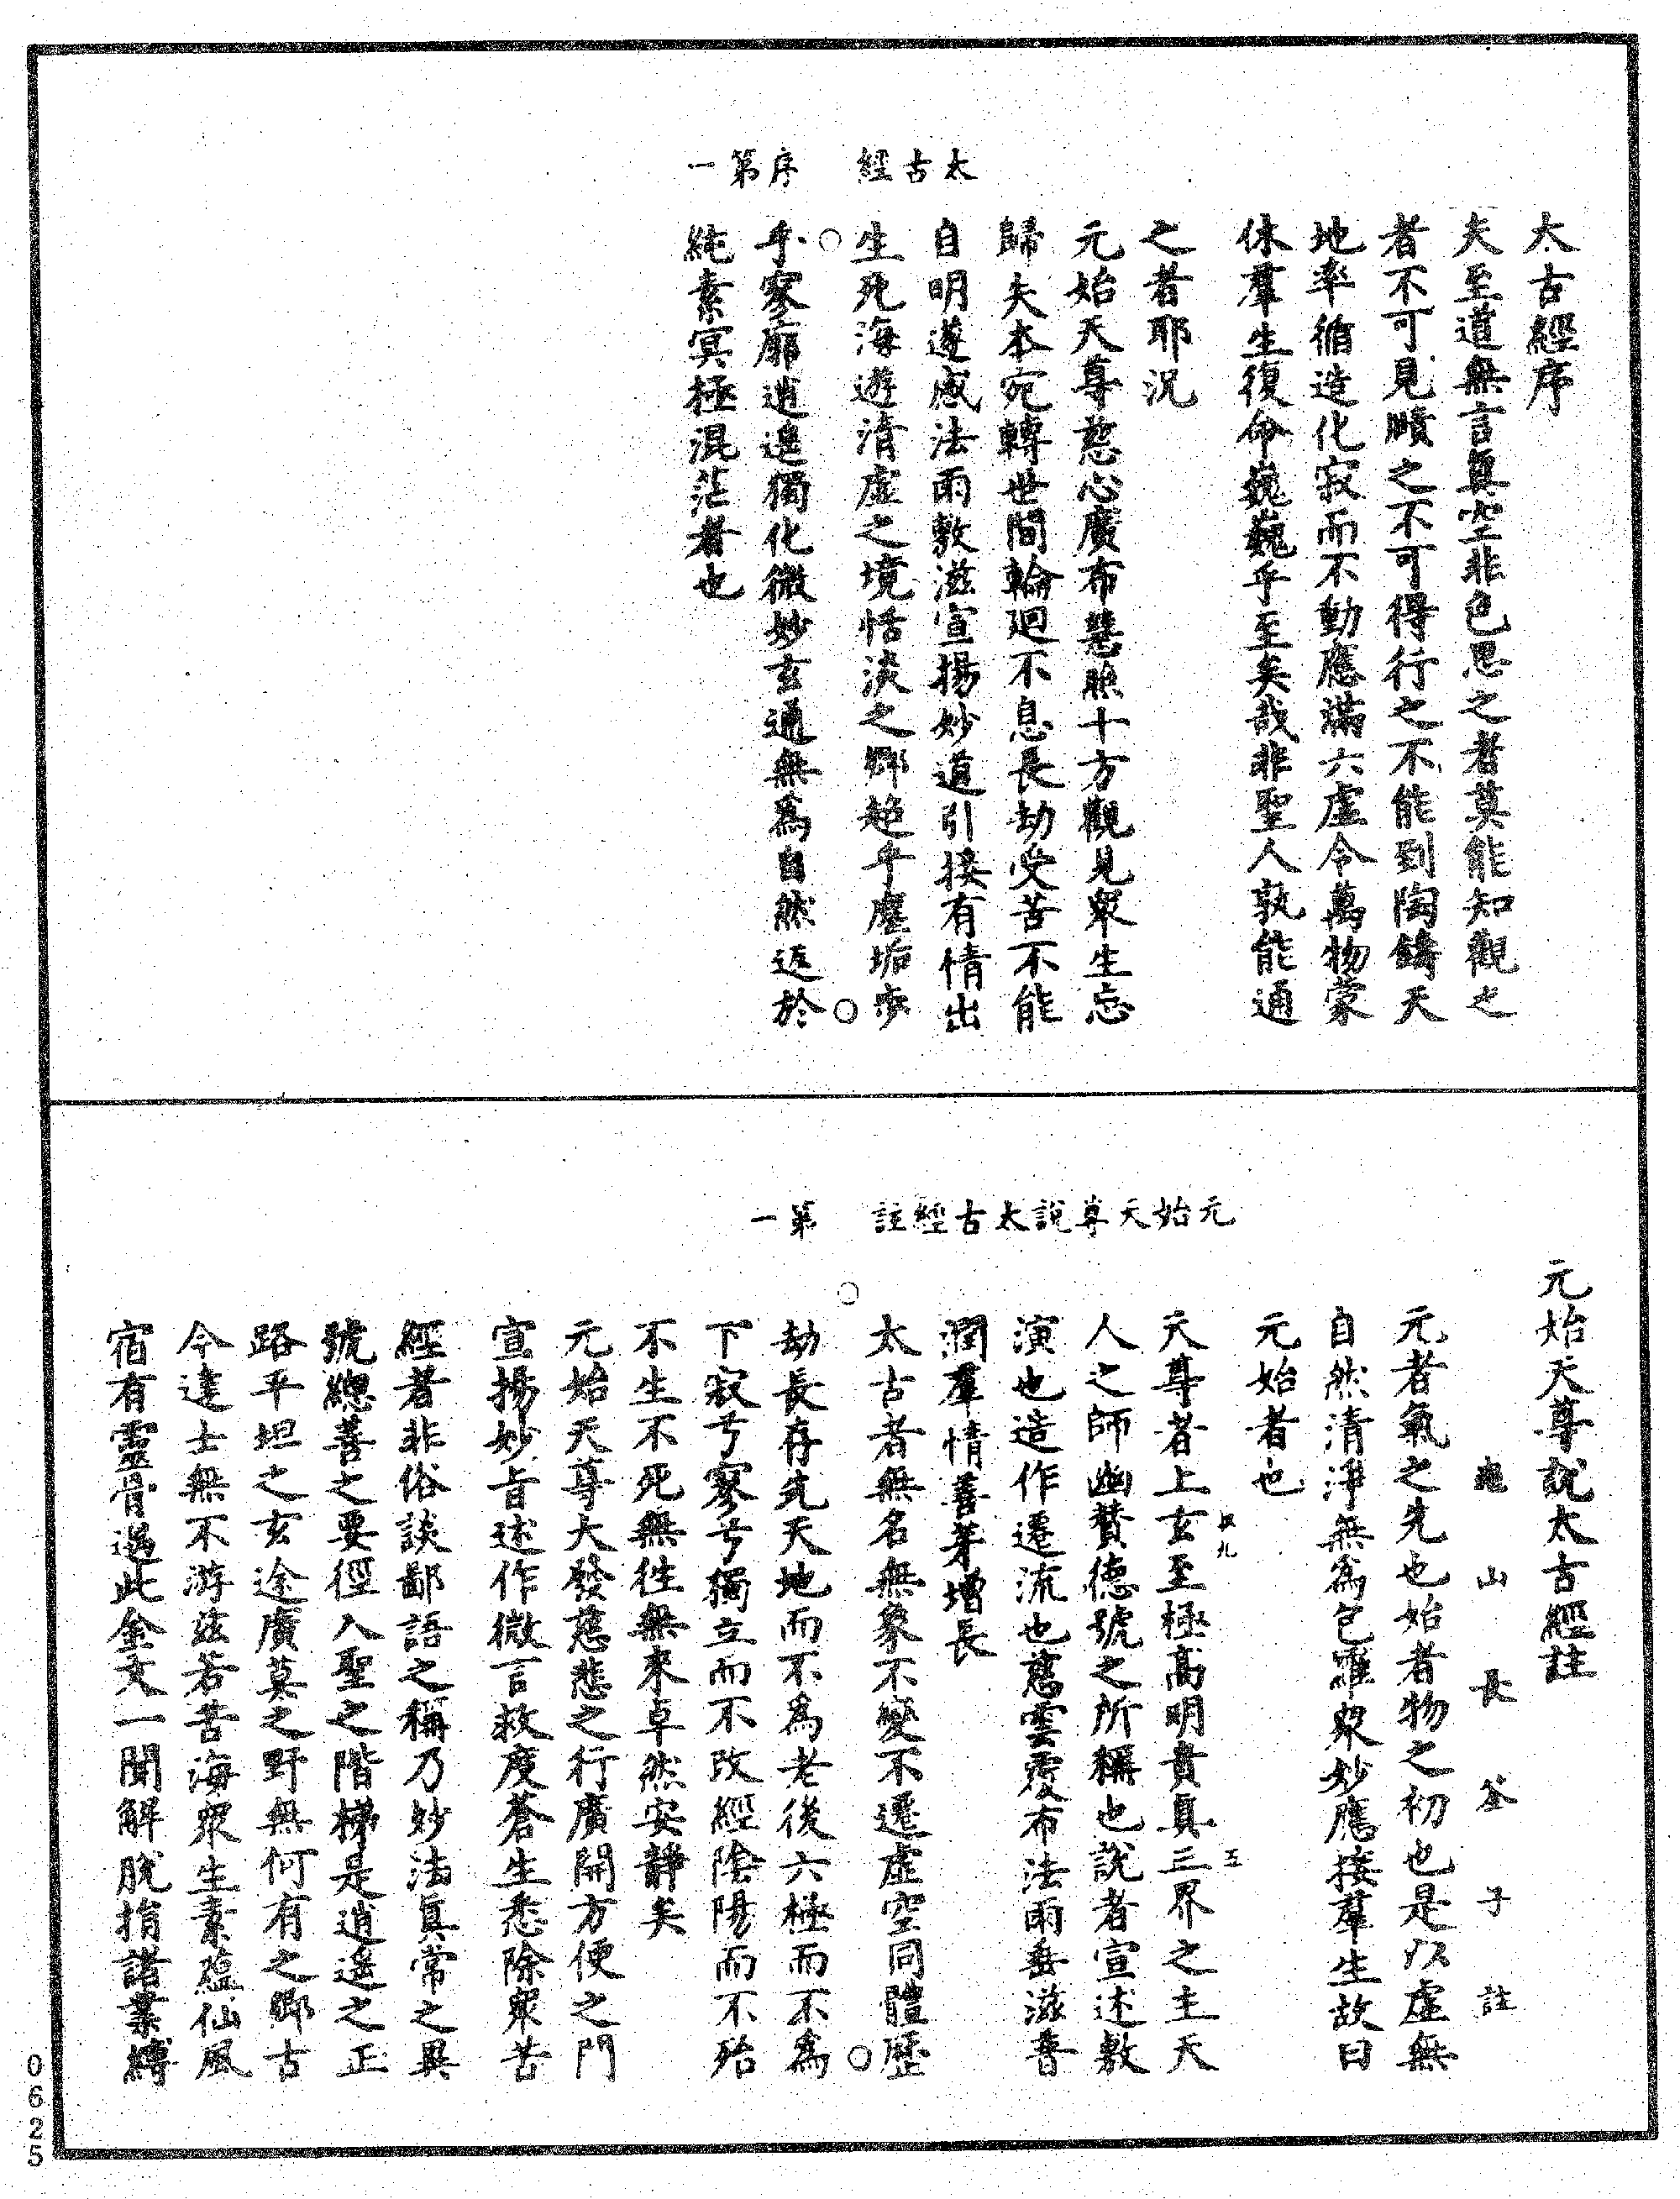 太古經　序第一
太古經序
夫至道無言真空非色思之者莫能知觀之
者不可見賾之不可得行之不能到陶鑄天
地率循造化寂而不動應滿六虛令萬物蒙
休羣生復命巍巍乎至矣哉非聖人孰能通
之者耶況
元始天尊慈心廣布慧照十方觀見衆生忘
歸失本宛轉世間輪迴不息長劫受苦不能
自明遂感法雨敷滋宣揚妙道引接有情出
生死海遊清虛之境恬淡之鄉超乎塵垢步
乎寥廓逍遙獨化微妙玄通無為自然返於
純素冥極混茫者也
元始天尊說太古經註　第一
元始天尊說太古經註
山長筌子註
元者氣之先也始者物之初也是以虛無
自然清淨無為包羅衆妙應接羣生故曰
元始者也
天尊者上玄至極高明貴真三界之主天
人之師幽贊德號之所稱也說者宣述敷
演也造作遷流也慈雲覆布法雨垂滋普
潤羣情善芽增長
太古者無名無象不變不遷虛空同體歷
劫長存先天地而不為老後六極而不為
下寂兮寥兮獨立而不改經陰陽而不殆
不生不死無徃無來卓然安靜矣
元始天尊大發慈悲之行廣開方便之門
宣揚妙旨述作微言救度蒼生悉除衆苦
經者非俗談鄙語之稱乃妙法真常之異
號總善之要徑入聖之階梯是逍遙之正
路平坦之玄途廣莫之野無何有之鄉古
今達士無不游茲若苦海衆生素蘊仙風
宿有靈骨遇此金文一聞解脫捐諸業縛
五
0625